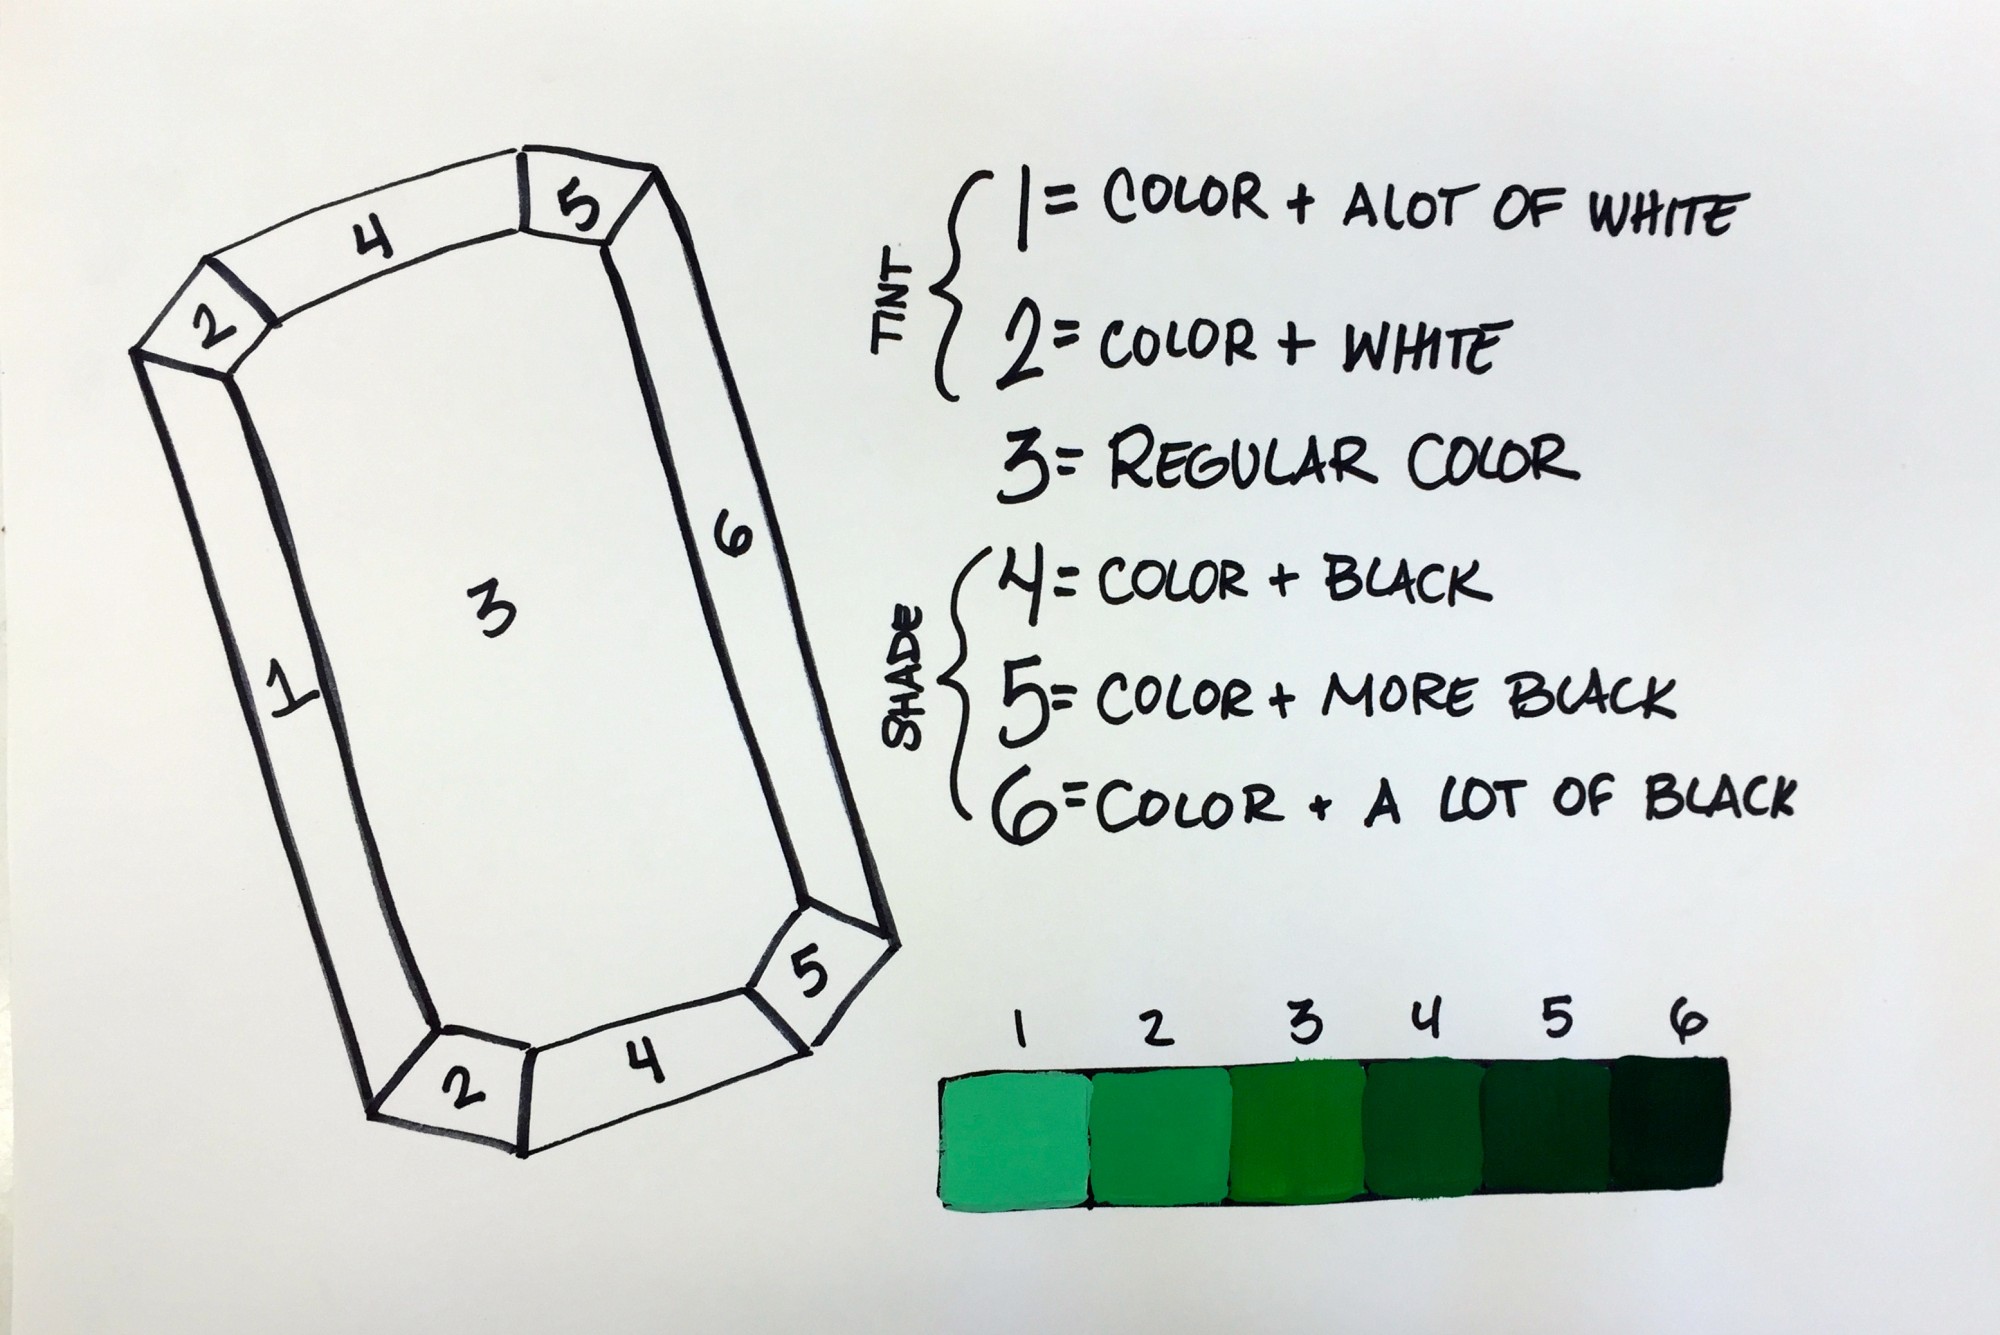 5
4
2
6
3
1
5
4
2
TINT
1= COLOR + ALOT OF WHITE
2= COLOR + WHITE
3= REGULAR COLOR
SHADE
4= COLOR + BLACK
5= COLOR + MORE BLACK
6= COLOR + A LOT OF BLACK
1 2 3 4 5 6